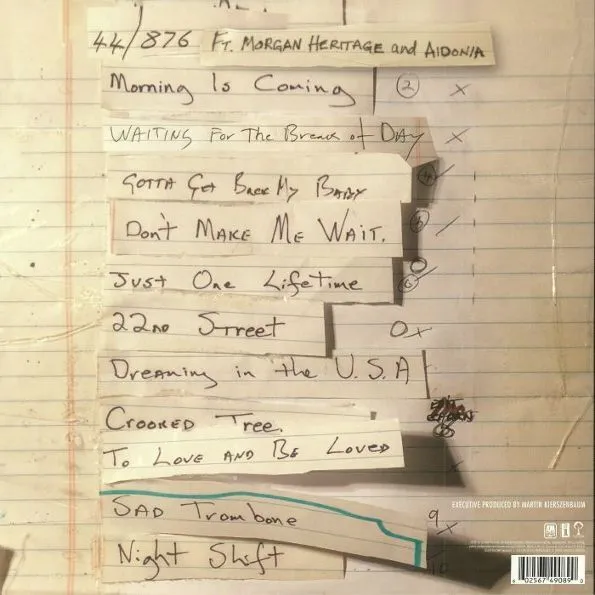 44/876 Ft. MORGAN HERITAGE and AIDONIA
Morning Is Coming 2 x
WAITING For The Break of DAY x
GOTTA Get Back My BABY
Don't MAKE ME WAIT.
Just One Lifetime
22ND Street 0 x
Dreaming in the U.S.A
CROOKED Tree.
To LOVE AND BE LOVED
SAD Trombone 9 x
Night Shift
EXECUTIVE PRODUCED BY MARTIN KIERSZENBAUM
6 02567 49089 0